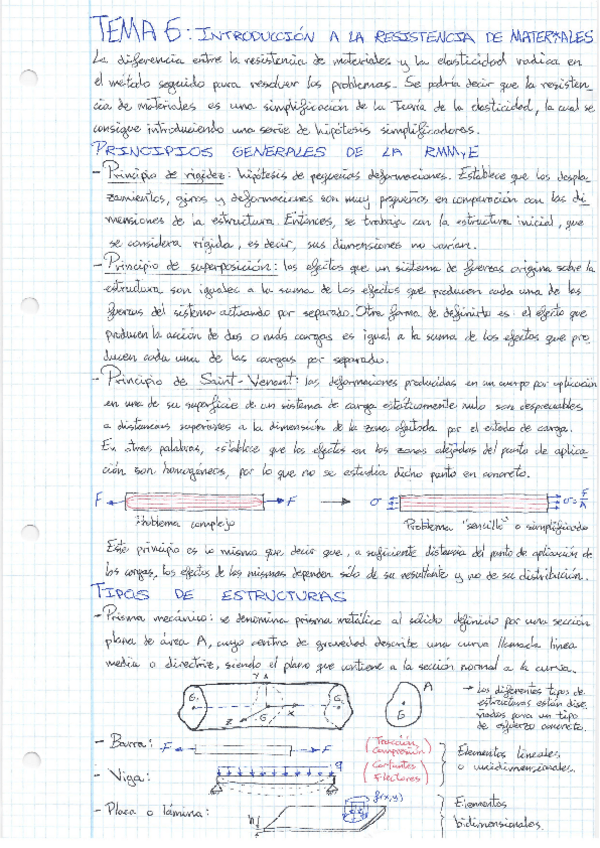 TEMA 6: INTRODUCCIÓN A LA RESISTENCIA DE MATERIALES
La diferencia entre la resistencia de materiales y la elasticidad radica en
el método seguido para resolver los problemas. Se podría decir que la resisten-
cia de materiales es una simplificación de la Teoría de la elasticidad, la cual se
consigue introduciendo una serie de hipótesis simplificadoras.
PRINCIPIOS GENERALES DE LA RMM,E
- Principio de rigidez: hipótesis de pequeñas deformaciones. Establece que los despla-
zamientos, giros y deformaciones son muy pequeños en comparación con las di-
mensiones de la estructura. Entonces, se trabaja con la estructura inicial, que
se considera rígida, es decir, sus dimensiones no varían.
- Principio de superposición: los efectos que un sistema de fuerzas origina sobre la
estructura son iguales a la suma de los efectos que producen cada una de las
fuerzas del sistema actuando por separado. Otra forma de definirlo es: el efecto que
producen la acción de dos o más cargas es igual a la suma de los efectos que pro-
ducen cada una de las cargas por separado.
- Principio de Saint-Venant: las deformaciones producidas en un cuerpo por aplicación
en una de su superficie de un sistema de carga estáticamente nulo son despreciables
a distancias superiores a la dimensión de la zona afectada por el estado de carga.
En otras palabras, establece que los efectos en las zonas alejadas del punto de aplica-
ción son homogéneos, por lo que no se estudia dicho punto en concreto.
F F σ σ = F/A
Problema complejo Problema "sencillo" o simplificado
Este principio es lo mismo que decir que, a suficiente distancia del punto de aplicación de
las cargas, los efectos de las mismas dependen sólo de su resultante y no de su distribución.
TIPOS DE ESTRUCTURAS
- Prisma mecánico: se denomina prisma metálico al sólido definido por una sección
plana de área A, cuyo centro de gravedad describe una curva llamada línea
media o directriz, siendo el plano que contiene a la sección normal a la curva.
Y
G G X Z G
A
G
→ Los diferentes tipos de
estructuras están dise-
ñados para un tipo
de esfuerzo concreto.
- Barra: F F (Tracción, Compresión)
- Viga: q (Cortantes, Flectores)
Elementos lineales
o unidimensionales.
- Placa o lámina: h f(x,y)
Elementos
bidimensionales.